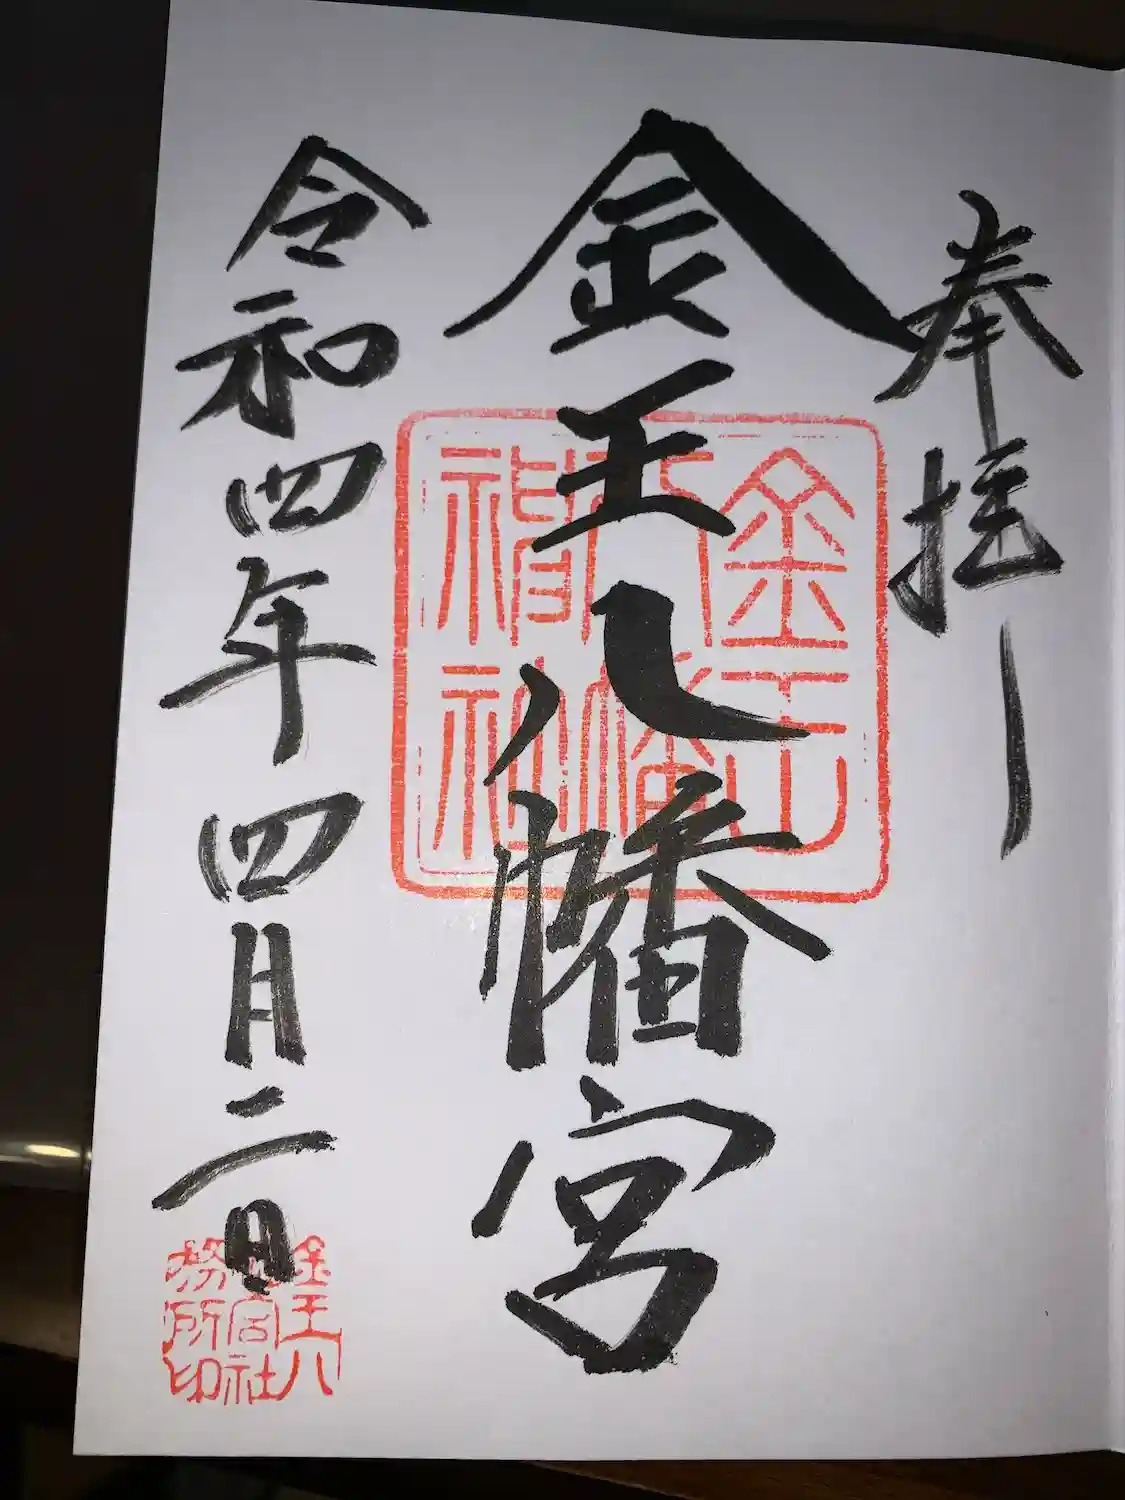 奉拝
金王八幡宮
令和四年四月二日
金王八幡神社
金王八幡宮社務所印